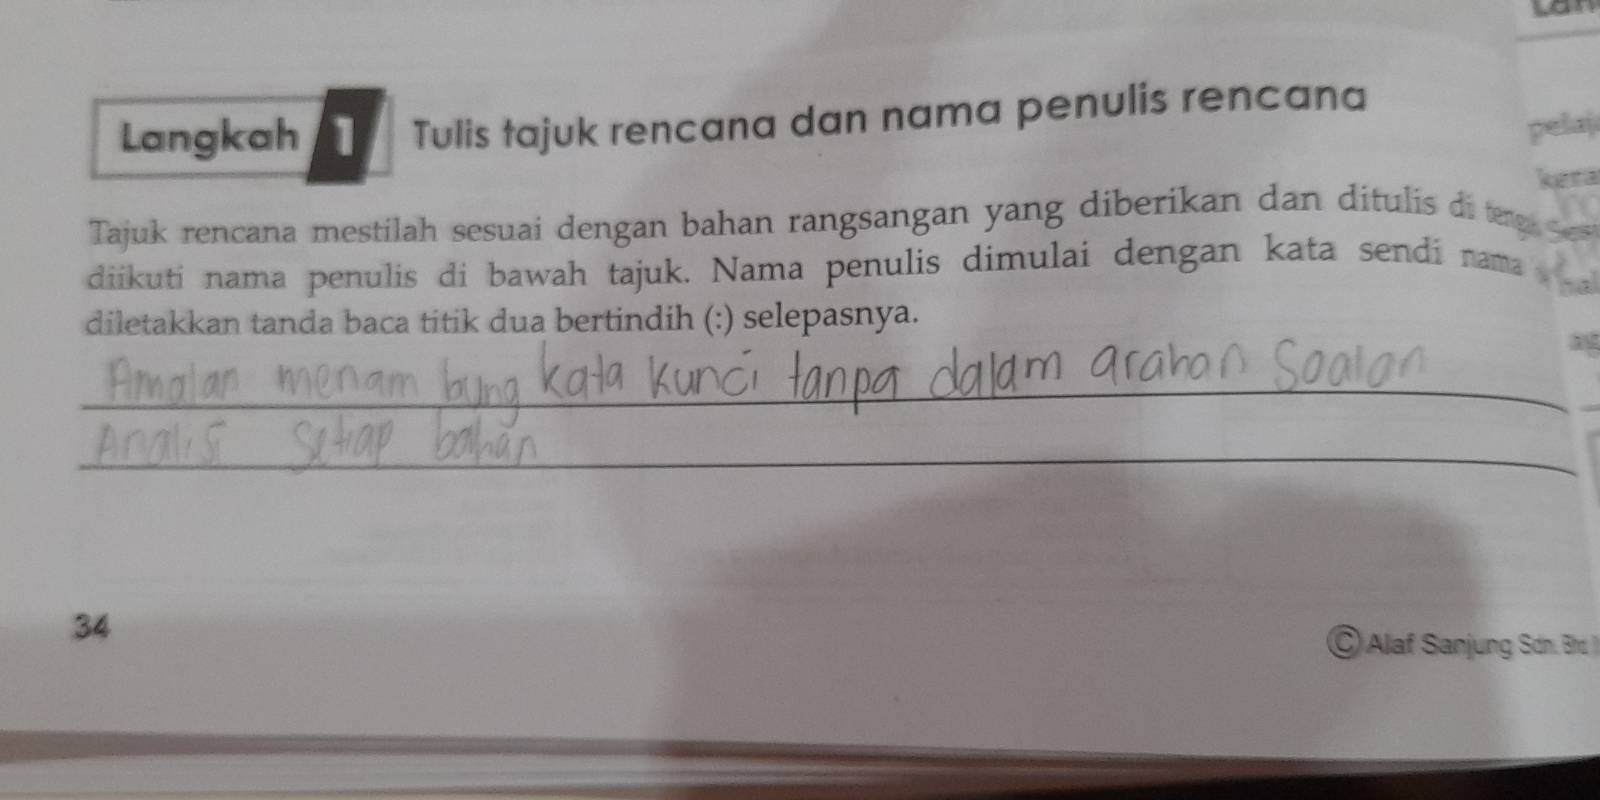 Lan
Langkah 1 Tulis tajuk rencana dan nama penulis rencana
pelaj
kera
Tajuk rencana mestilah sesuai dengan bahan rangsangan yang diberikan dan ditulis di
diikuti nama penulis di bawah tajuk. Nama penulis dimulai dengan kata sendi nama
hal
diletakkan tanda baca titik dua bertindih (:) selepasnya.
Amalan menam bung kata kunci tanpa dalam arahan Soalan
Analisi setiap bahan
34
© Alaf Sanjung Sdn. Bhd